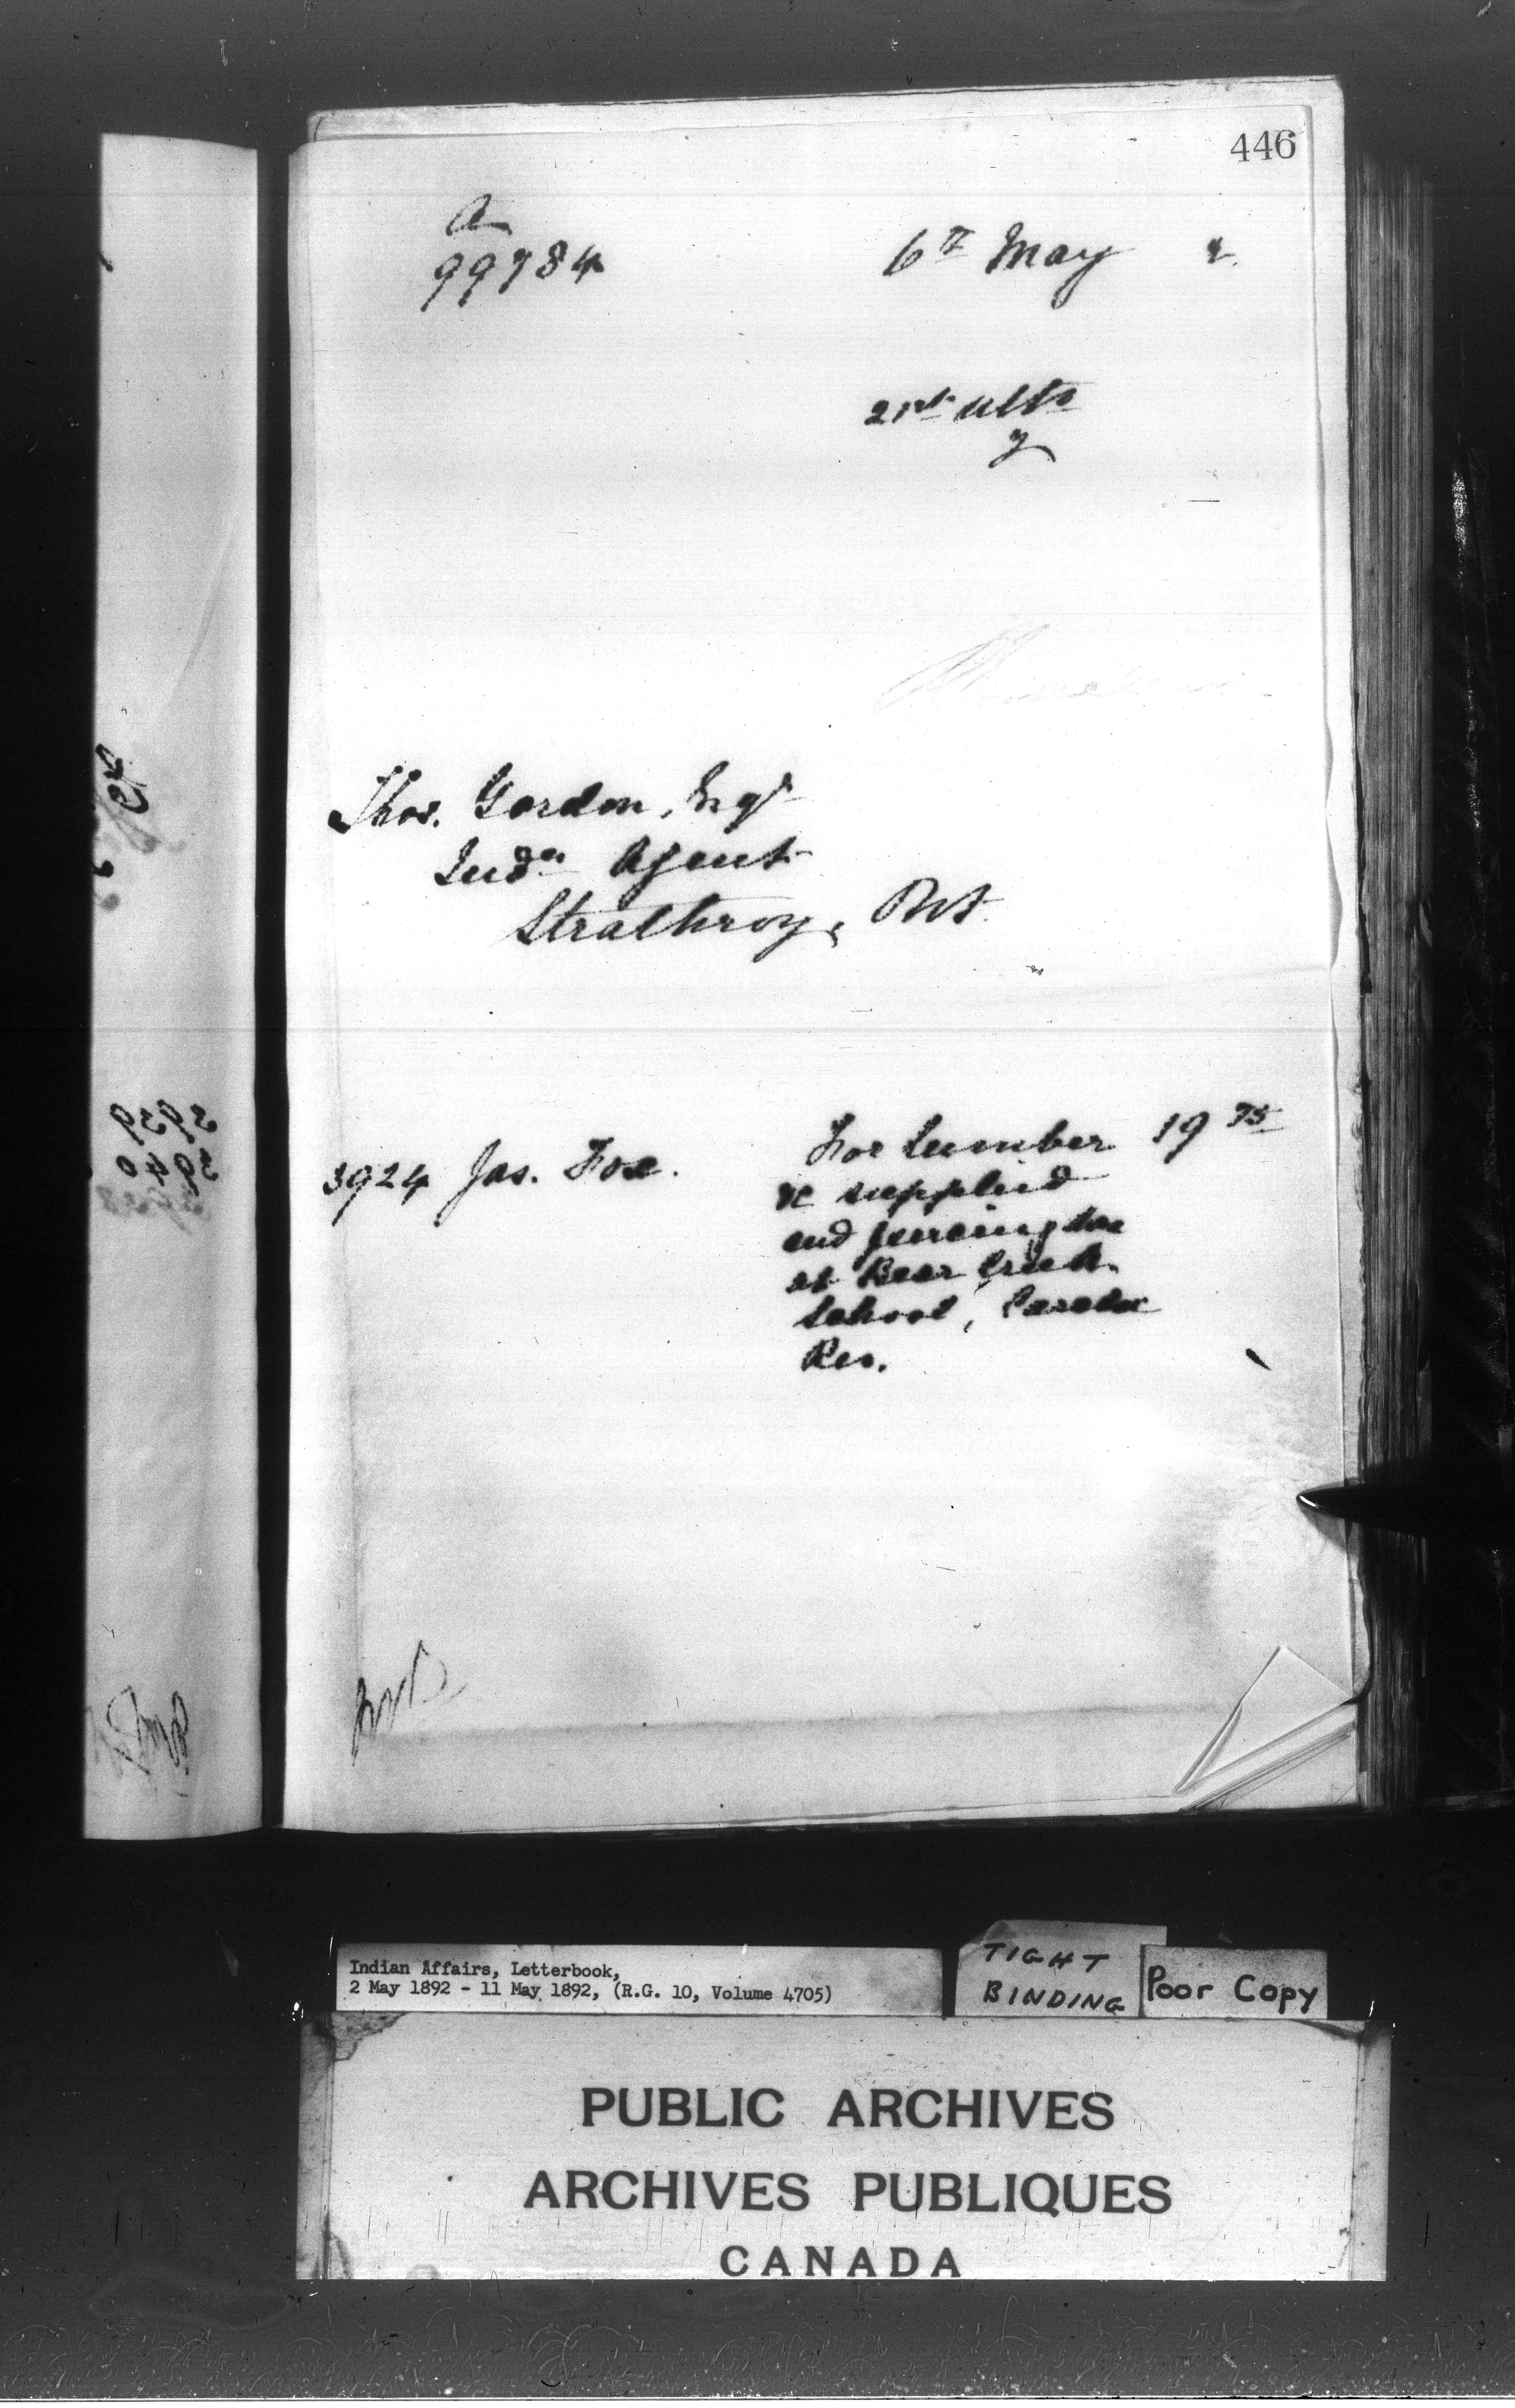 446
A
99784
6th May 2.
21st ulto
y
Thos. Gordon, Esqr
Indn Agent
Strathroy, Ont.
3924 Jas. Fox.
For Lumber 19 75
&c supplied
and fencing done
at Bear Creek
School, Caradoc
Res.
Indian Affairs, Letterbook,
2 May 1892 - 11 May 1892, (R.G. 10, Volume 4705)
TIGHT
BINDING
Poor Copy
PUBLIC ARCHIVES
ARCHIVES PUBLIQUES
CANADA